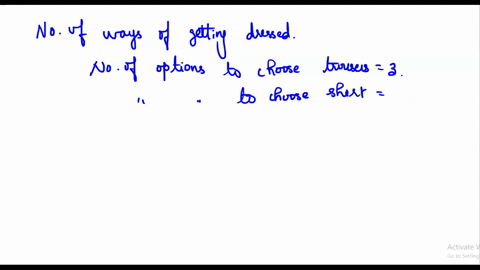 No. of ways of getting dressed.
No. of options to choose trousers = 3.
" " to choose short =
Activate W
Go to Setting